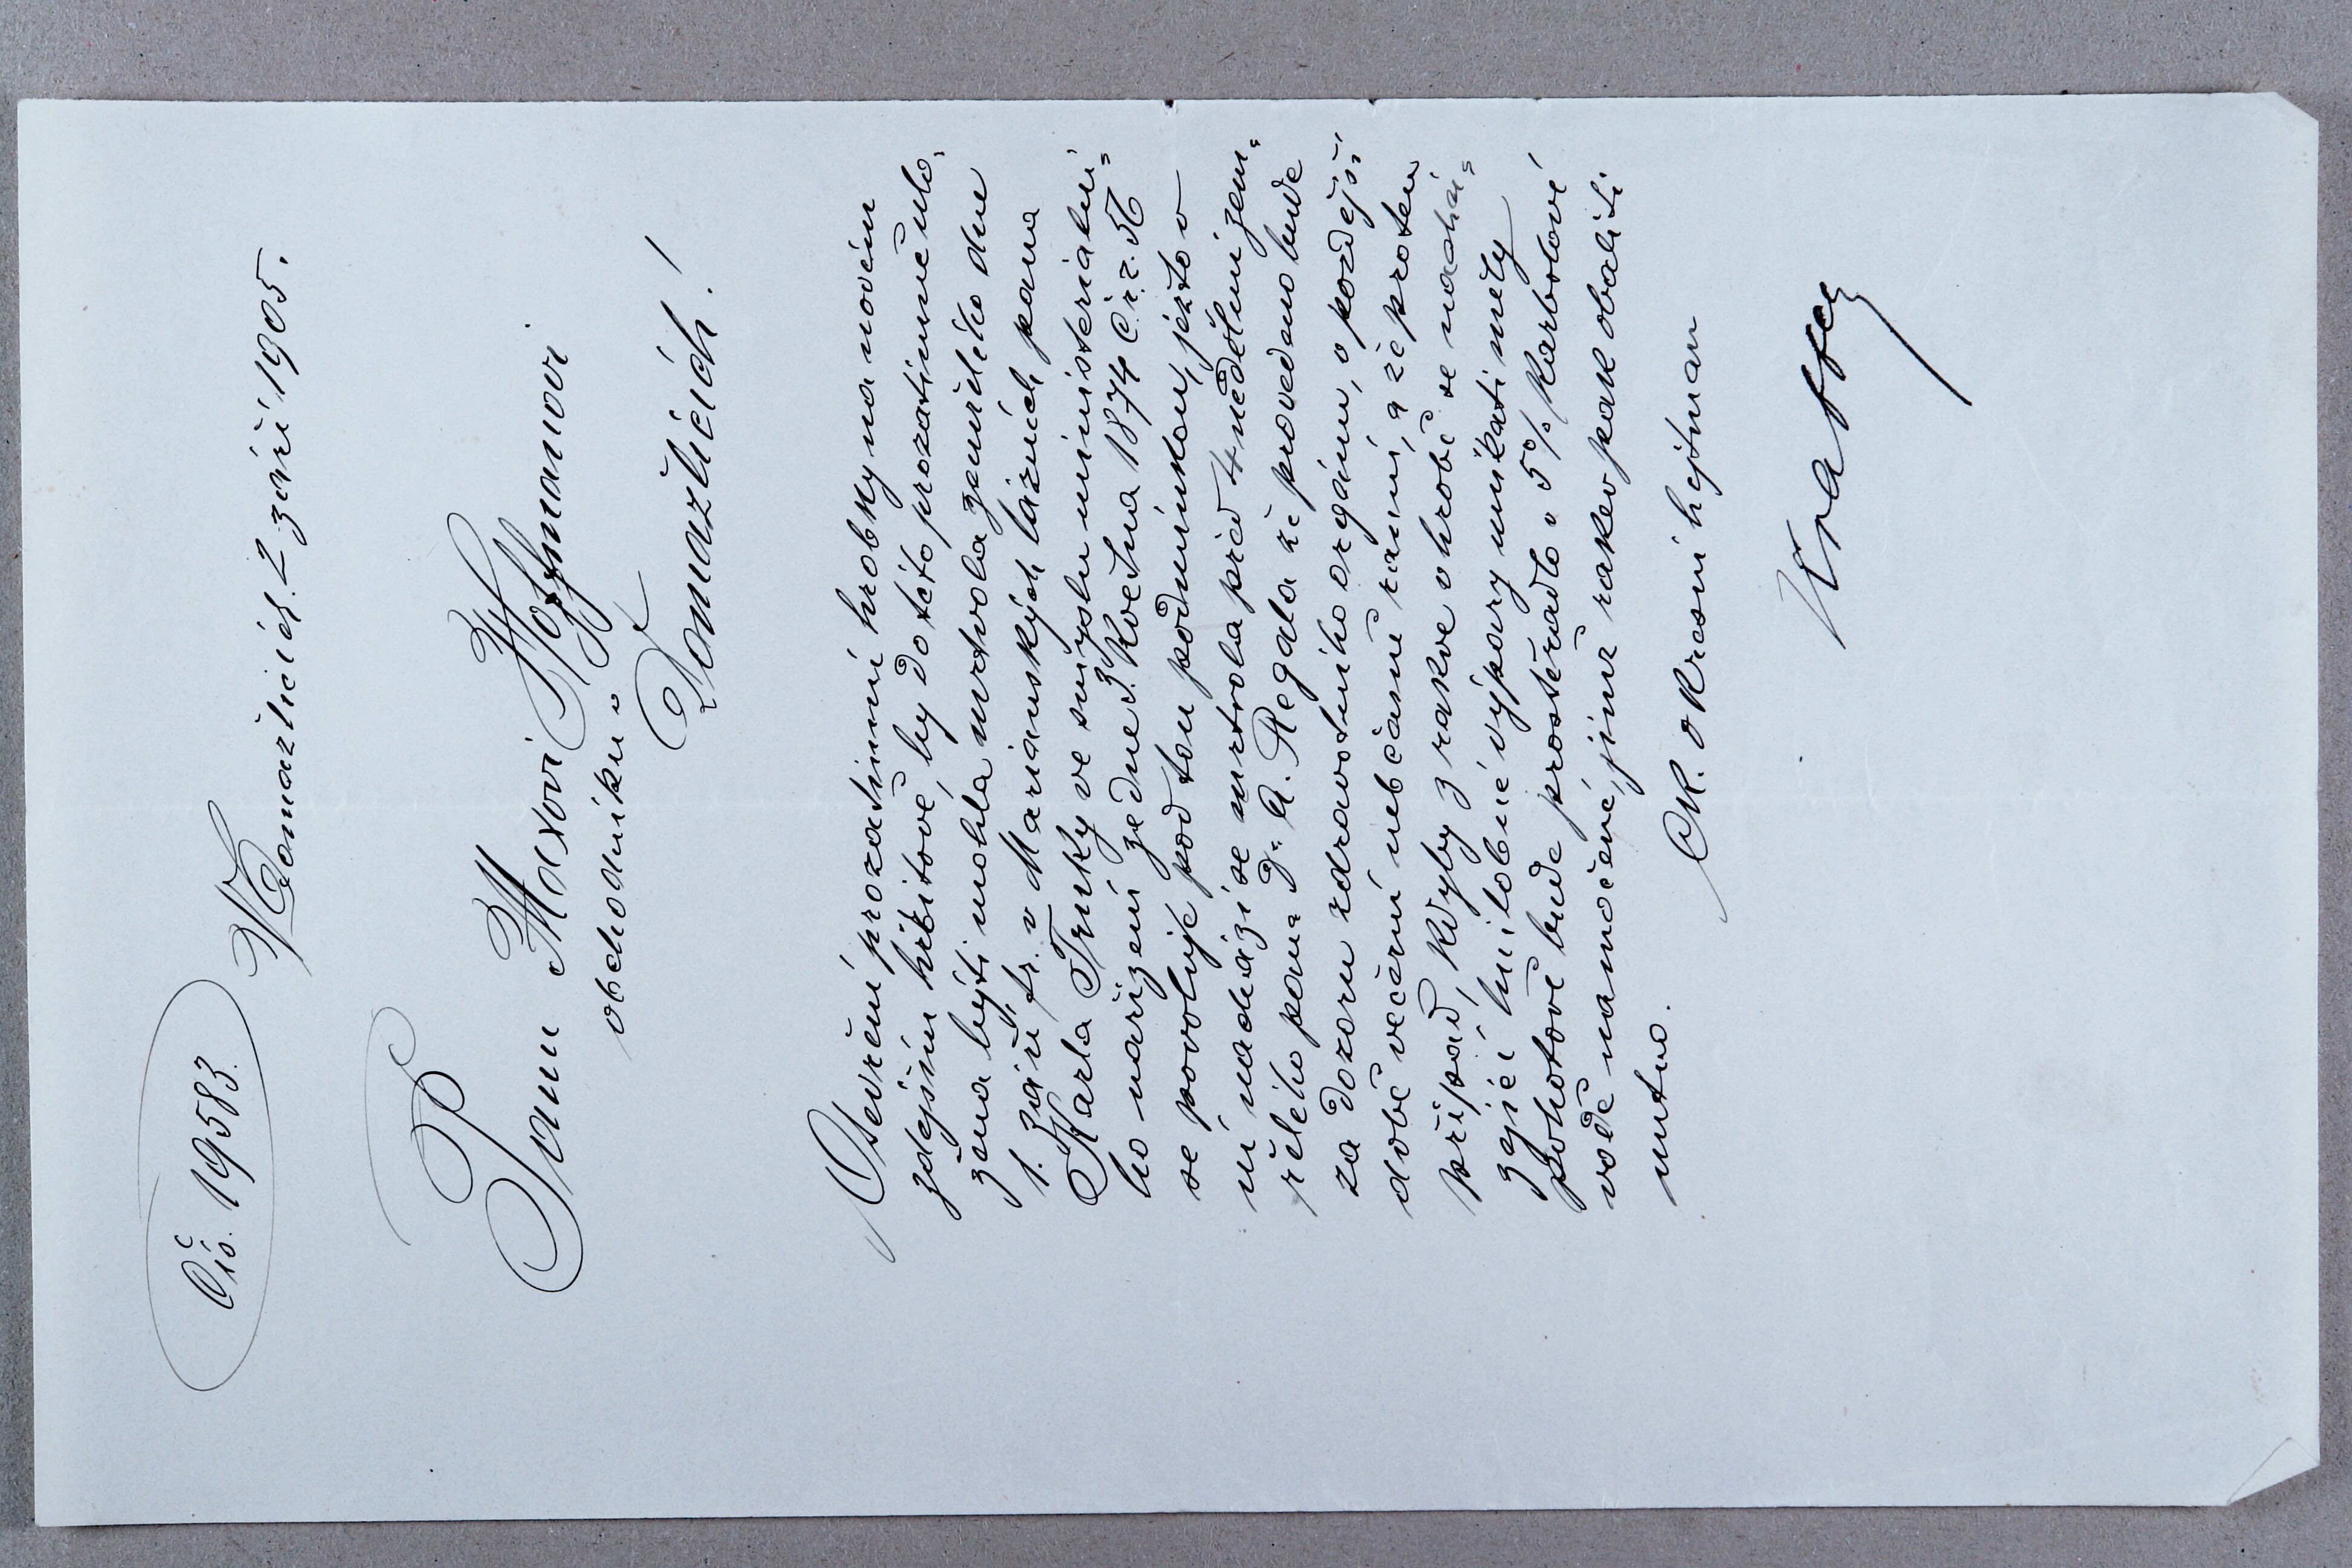 Čís. 19583.
V Domažlicích 2 září 1905.
Panu Maxovi Hoffmanovi
obchodníku v
Domažlicích!
Otevření prozatimní hrobky na novém
zdejším hřbitově, by do této prozatimně ulo-
žena býti mohla mrtvola zemřelého dne
1. září t.r. v Marianských lázních pana
Karla Trnky ve smyslu ministerialní=
ho nařízení ze dne 3. května 1874 č. ř. z. 56
se povoluje pod tou podmínkou, ježto v
ní nachází se mrtvola před 4 nedělmi zem=
řelého pana Dr A. Regala že provedeno bude
za dozoru zdravotního orgánu, v pozdější
době večerní neb časně ranní, a že pro ten
případ, kdyby z rakve v hrobě se nachá=
zející hnilobné výpary unikati měly
pohotově bude prostěradlo v 5% karbolové
vodě namočené, jímž rakev pak obaliti
nutno.
Ck. okresní hejtman